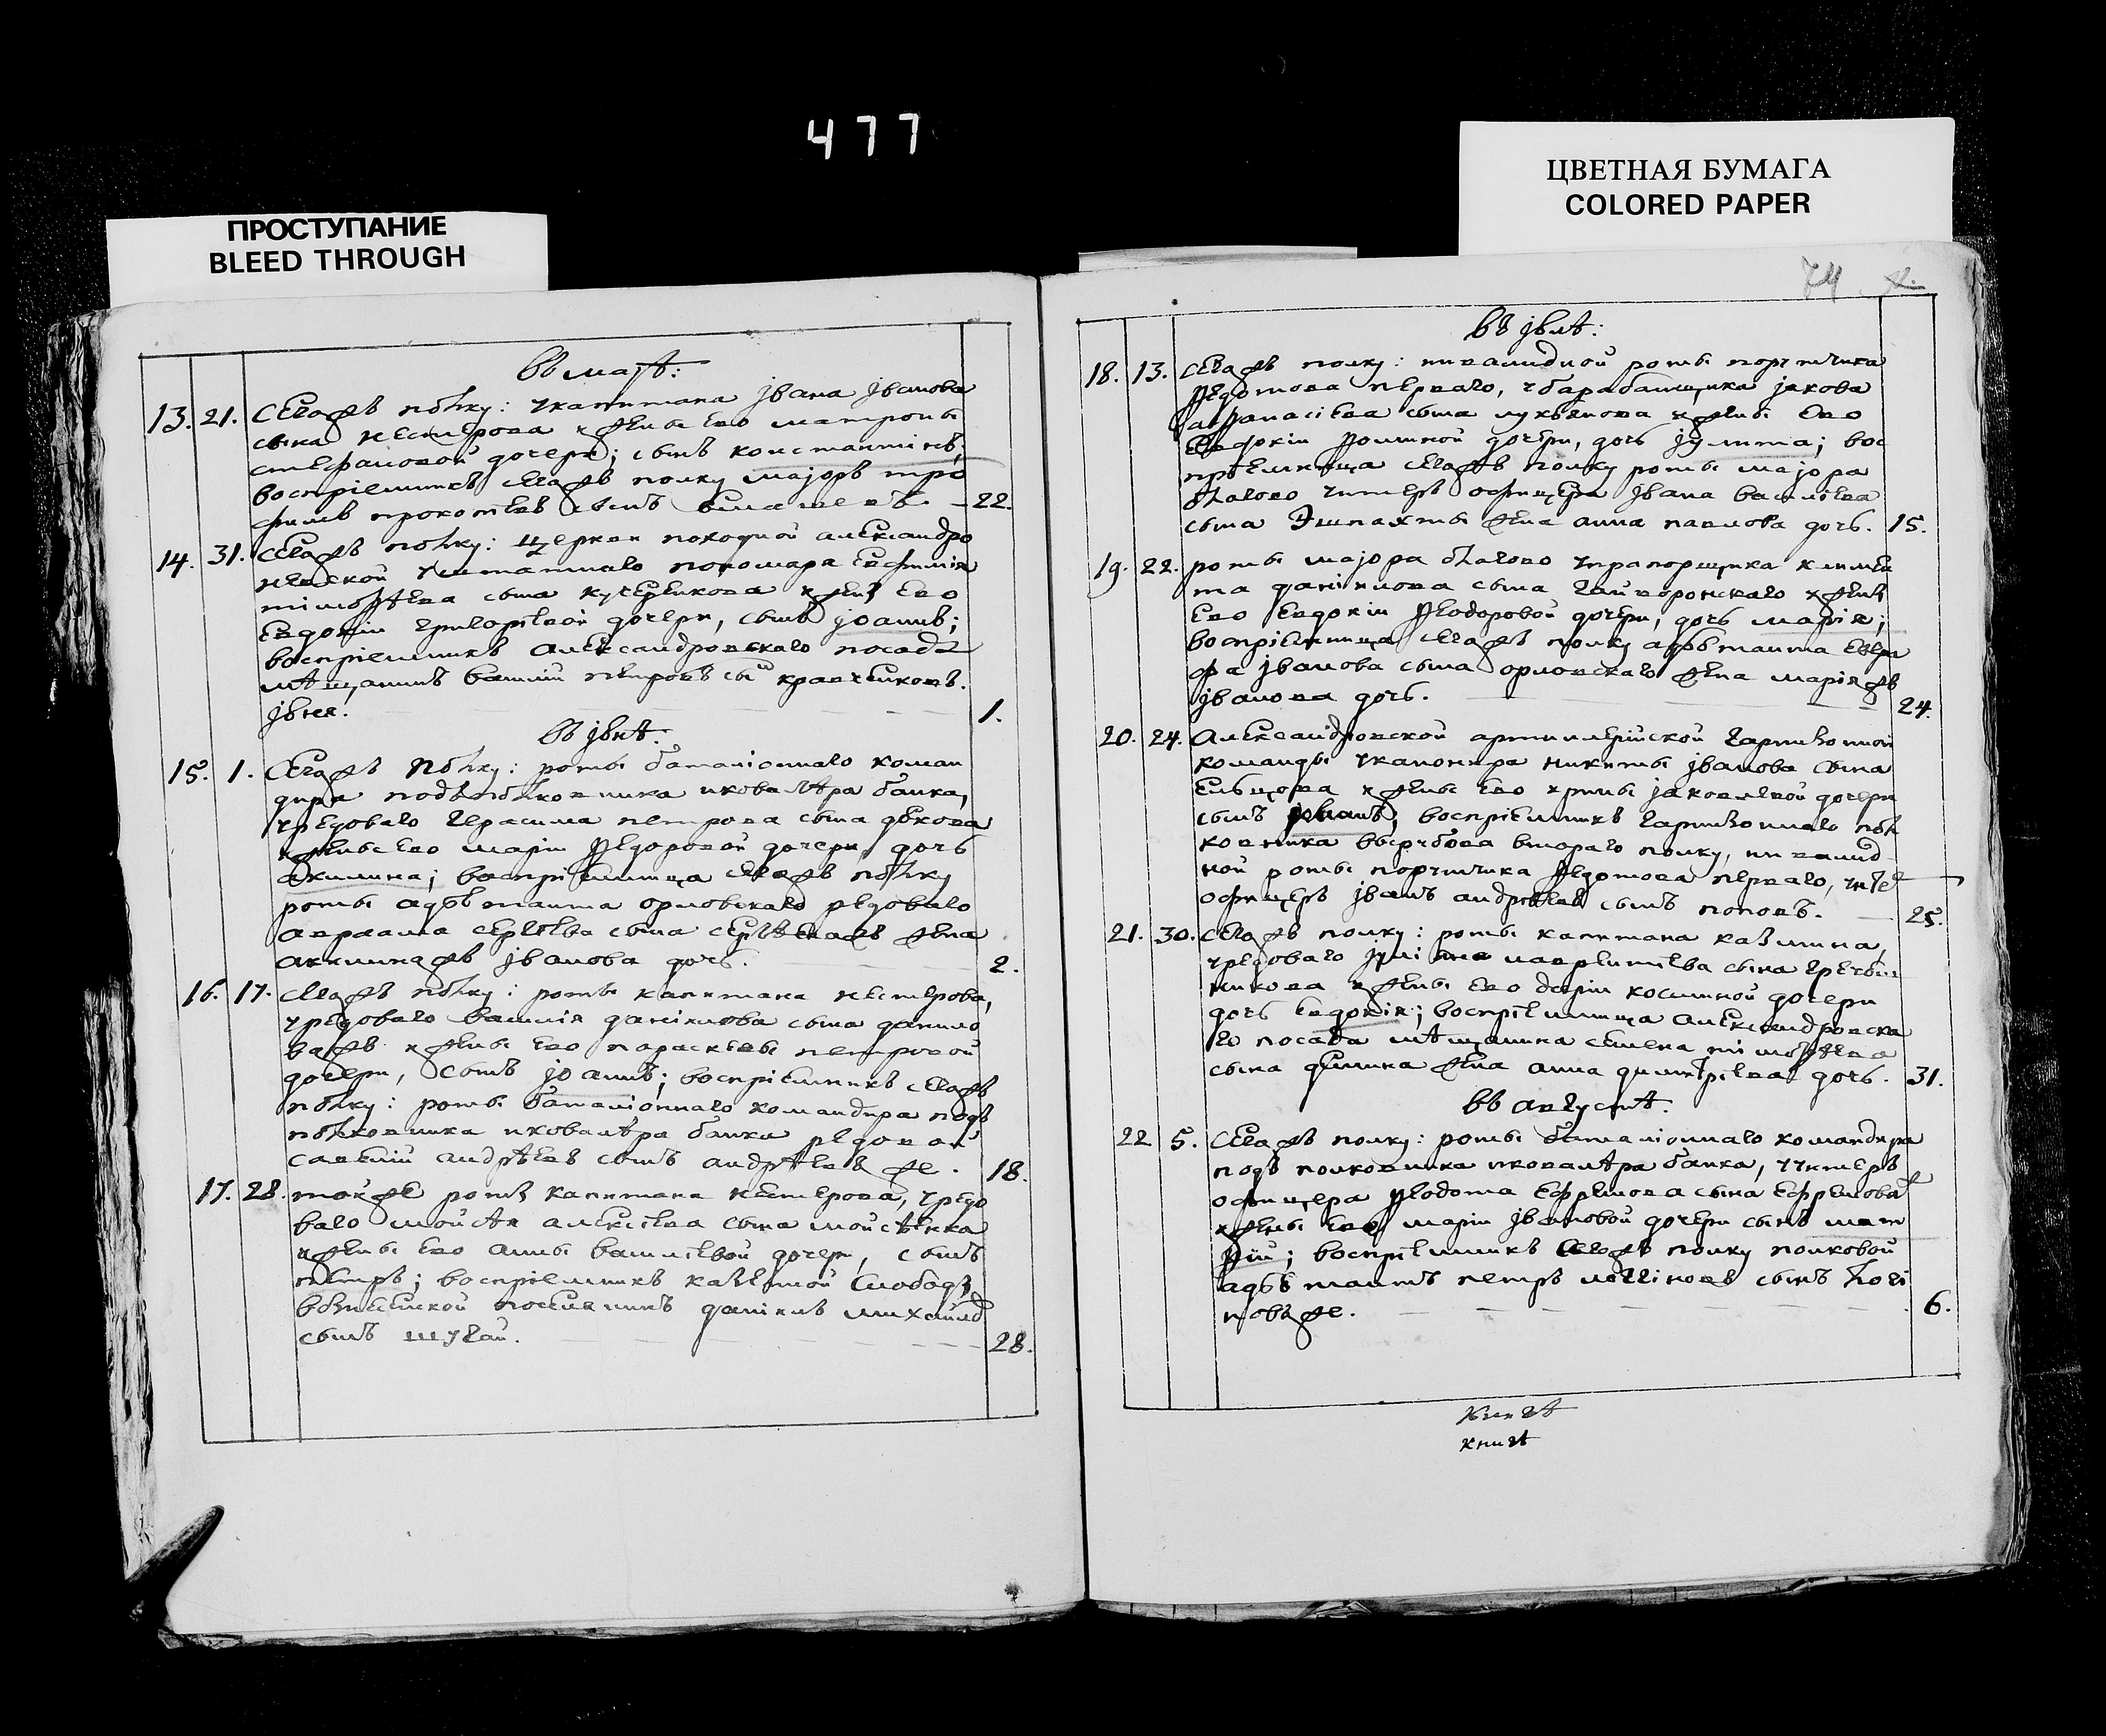 477
ПРОСТУПАНИЕ
BLEED THROUGH
ЦВЕТНАЯ БУМАГА
COLORED PAPER
74
въ маѣ:
13. 21. сегожъ полку: у капитана Івана Іванова
сына нестерова и жены ево матроны
стефановой дочери; сынъ константінъ;
воспріемникъ сегожъ полку маіоръ тро
фимъ прокопіевъ сынъ 22.
14. 31. сегожъ полку: церкви походной александро
невской пономара Евфиміа
тімоѳѣева сына кучеренкова и жены Ево
Евдокіи григоріевой дочери, сынъ іоаннъ;
воспріемникъ александровскаго посада
мѣщанинъ василій петровъ сынъ кравченковъ.
іюня. 1.
въ іюнѣ:
15. 1. сегожъ полку: роты баталіоннаго коман
дира подполковника и ковалѣра банка,
у редоваго герасима петрова сына дюкова
и жены ево маріи ѳедоровой дочери, дочь
акилина; воспріемница сегожъ полку
роты адъютанта орловскаго редоваго
авраама сергѣева сына сергѣеважъ жена
акилинажъ іванова дочь. 2.
16. 17. сегожъ полку: роты капитана нестерова,
у редоваго василія данііілова сына данило
важъ и жены ево параскевы петровой
дочери, сынъ іоаннъ; воспріемникъ сегожъ
полку: роты баталіоннаго командира подъ
полковника и ковалѣра банка редовой
савелій андрѣевъ сынъ андрѣевъ же. 18.
17. 28. той же роты капитана нестерова, у редо
ваго моисѣя алексіева сына моисѣенка
и жены ево анны василіевой дочери, сынъ
петръ; воспріемникъ казенной слободы
вознесенской поселянинъ даніилъ михайловъ
сынъ шугай. 28.
въ іюлѣ:
18. 13. сегожъ полку: инвалидной роты поручика
ѳедотова перваго, у барабанщика іакова
аѳанасіева сына лукьянова и жены ево
Евдокіи ѳоминой дочери, дочь іулитта; вос
пріемница сегожъ полку роты маіора
бѣлаго унтеръ офицера Івана василіева
сына жена анна павлова дочь. 15.
19. 22. роты маіора бѣлаго у прапорщика климен
та данііілова сына гайворонскаго и жены
ево евдокіи ѳеодоровой дочери, дочь марія;
воспріемница сегожъ полку адъютанта Евгра
фа іванова сына орловскаго жена маріяжъ
іванова дочь. 24.
20. 24. александровской артиллерійской гарнизонной
команды у канонира никиты іванова сына
Ельцова и жены ево ирины іаковлевой дочери
сынъ іоаннъ, воспріемникъ гарнизоннаго пол
ковника вырубова втораго полку, инвалид
ной роты поручика ѳедотова перваго, унтеръ
офицеръ іванъ андрѣевъ сынъ поповъ. 25.
21. 30. сегожъ полку: роты капитана казимина,
у редоваго лаврентіева сына
и жены ево дарьи косминой дочери
дочь евдокія; воспріемница александровска
го посада мѣщанина семена тімоѳѣева
сына демина жена анна димитріева дочь. 31.
въ августѣ:
22 5. сегожъ полку: роты баталіоннаго командира
подъ полковника и ковалѣра банка, у унтеръ
офицера ѳеодота ефремова сына ефремова
и жены ево маріи івановой дочери сынъ мат
ѳій; воспріемникъ сегожъ полку полковой
адъютантъ петръ логгиновъ сынъ логи
новъ же. 6.
книгѣ
книгѣ